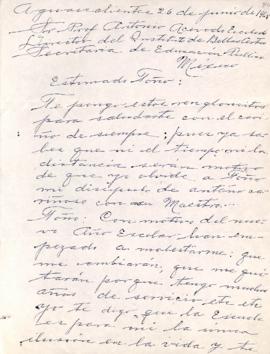 Aguascalientes 26 de junio de
Sr. Prof. Antonio Acevedo Escobedo
del Instituto de Bellas Artes
Secretaria de Educación Pública
México
Estimado Toño:
Te pongo estos renglones
para saludarte con el cari
ño de siempre; pues ya sa
bes que ni el tiempo ni la
distancia serán motivo
de que yo olvide a Toño
mi discípulo de antaño ca
riñoso con su Maestra...
Toño: Con motivo del nue
vo Año Escolar han em
pezado a molestarme: que
me cambiarán, que me qui
tarán porque tengo muchos
años de servicio etc etc
yo te digo que la Escuela
es para mí la única
ilusión en la vida y te